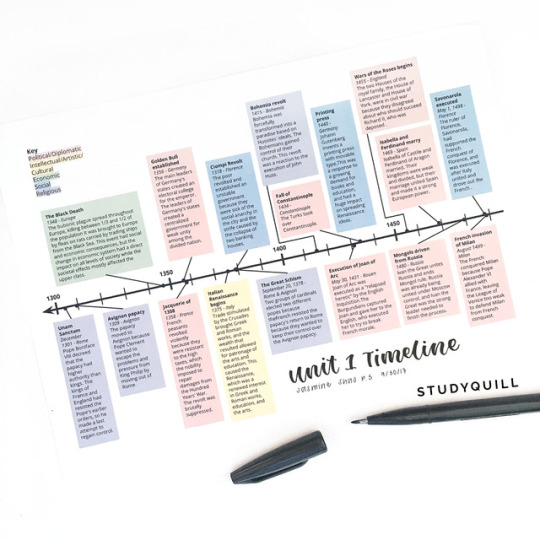 Key
Political/Diplomatic
Intellectual/Artistic/
Cultural
Economic
Social
Religious
The Black Death
1348 - Europe
The bubonic plague spread throughout
Europe, killing between 1/3 and 1/2 of
the population it was brought to Europe
by fleas on rats carried by trading ships
from the Black Sea. This event had social
and economic consequences, but the
change in economic systems had a direct
impact on all levels of society while the
societal effects mostly affected the
upper class.
Golden Bull
established
1356 - Germany
The main leaders
of Germany's
states created an
electoral college
for the emperor.
The leaders of
Germany's states
created a
centralised
government for
unity among
the divided
nation.
Ciompi Revolt
1378 - Florence
The poor
revolted and
established an
unstable
government
because they
were sick of the
social anarchy in
the city and the
strife caused by
the collapse of
two banking
houses.
Bohemia revolt
1415 - Bohemia
Bohemia was
forcefully
transformed into a
paradise based on
Hussites' ideals. The
Bohemians gained
control of their
church. This revolt
was a reaction to the
execution of John
Fall of
Constantinople
Constantinople
The Turks took
over
Constantinople.
Printing
press
1440 -
Germany
Johann
Gutenberg
invents a
printing press
with movable
type. This was
a response to
the growing
demand for
books and
education, and
had a
impact on
spreading
Renaissance
ideas.
Wars of the Roses begins
1455 - England
The two Houses of the
royal family, the House of
Lancaster and House of
York, were in civil war
because they disagreed
about who should succeed
Richard II, who was
deposed.
Isabella and
Ferdinand marry
1469 - Spain
Isabella of Castile and
Ferdinand of Aragon
married. Their
kingdoms were weak
and divided, but their
marriage united Spain
into a strong
European power.
Savonarola
executed
May 1, 1498 -
Florence
The ruler of
Florence,
Savonarola,
had
supported the
French
conquest of
Florence, and
was executed
after Italy
drove out the
French.
1300
1350
1400
1450
1500
Unam
Sanctam
December
1301 - Rome
Pope Boniface
VIII decreed
that the
papacy had
more
authority than
kings. The
kings of
France and
England had
resisted the
Pope's earlier
orders, so he
made a last
attempt to
regain control.
Avignon papacy
1309 - Avignon
The papacy
moved to
Avignon because
Pope Clement
wanted to
escape the
problems and
pressure from
King Philip by
moving out of
Rome.
Jacquerie of
1358
1358 - France
French
peasants
revolted
violently
because they
were resistant
to the high
taxes, which
the nobility
imposed to
repair
damages from
the Hundred
Years' War.
The revolt was
brutally
suppressed.
Italian
Renaissance
begins
1375 - Italy
Trade stimulated
by the Crusades
brought Greek
and Roman
works, and the
wealth that
resulted allowed
for patronage of
the arts and
education. This
caused the
Renaissance,
which was a
renewed interest
in Greek and
Roman works,
education, and
the arts.
The Great Schism
September 20, 1378 -
Rome & Avignon
Two groups of cardinals
elected two different
popes because
the French resisted the
papacy's return to Rome
because they wanted to
keep their control over
the Avignon papacy.
Execution of Joan of
Arc
May 30, 1431 - Rouen
Joan of Arc was
executed as a "relapsed
heretic" by the
Inquisition. The
Burgundians captured
Joan and gave her to the
English, who executed
her to try to break
French morale.
Mongols driven
from Russia
1480 - Russia
Ivan the Great unites
Russia and ends
Mongol rule. Russia
was already being
united under Muscovite
control, and Ivan the
Great was the strong
leader needed to
finish the process.
French invasion
of Milan
August 1499 -
Milan
The French
conquered Milan
because Pope
Alexander VI
allied with
France, and
Venice leaving
the League of
Venice was too weak
to defend from
French
conquest.
Unit 1 Timeline
P.5 9/30/19
STUDYQUILL